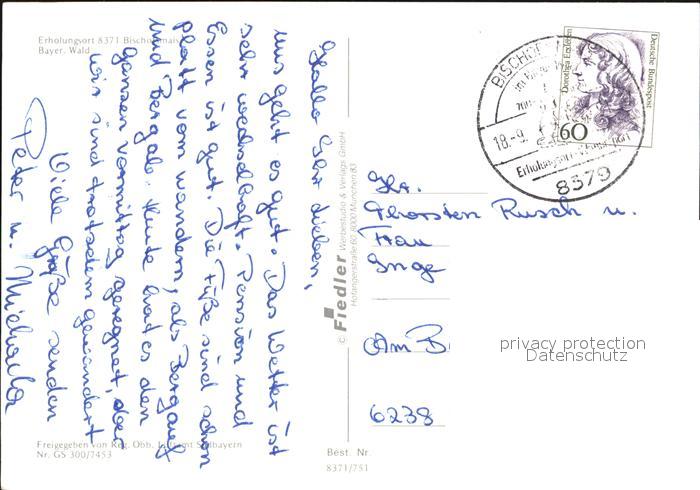 Erholungsort 8371 Bischofsmais
Bayer. Wald
Hallo Ihr Lieben,
uns geht es gut. Das Wetter ist
sehr wechselhaft. Pension und
Essen ist gut. Die Füße sind schon
platt vom wandern, als Bergauf
und Bergab. Heute hat es den
ganzen Vormittag geregnet, aber
wir sind trotzdem gewandert
Viele Grüße senden
Peter u. Michaela
Freigegeben von Reg. Obb. Luftamt Südbayern
Nr. GS 300/7453
© Fiedler Werbestudio & Verlags GmbH
Hofangerstraße 60, 8000 München 83
Best. Nr.
8371/751
Deutsche Bundespost
Dorothea Erxleben
60
18.-9.
8379
Hr.
Thorsten Rusch u.
Frau
Inge
Am B
6238
privacy protection
Datenschutz